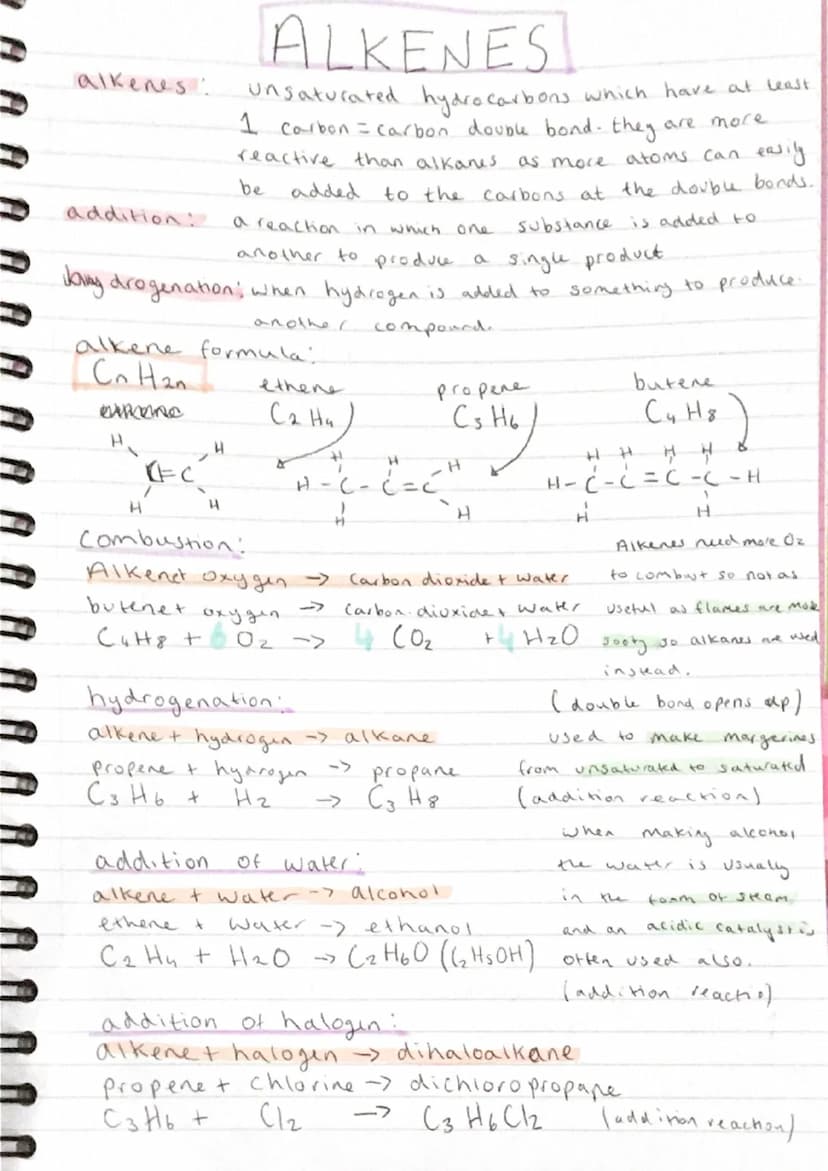 ALKENES
alkenes: unsaturated hydrocarbons which have at least
1 carbon = carbon double bond. they are more
reactive than alkanes as more atoms can easily
be added to the carbons at the double bonds.
addition: a reaction in which one substance is added to
another to produce a single product
hydrogenation: when hydrogen is added to something to produce
another compound.
alkene formula:
CnH2n
ethene propene butene
C2H4 C3H6 C4H8
H H H H H H H H H
C=C H-C-C=C H-C-C=C-C-H
H H H H H H
combustion:
Alkene + oxygen -> carbon dioxide + water
butene + oxygen -> carbon dioxide + water
C4H8 + 6 O2 -> 4 CO2 + 4 H2O
Alkenes need more O2
to combust so not as
useful as flames are more
sooty so alkanes are used
instead.
hydrogenation:
alkene + hydrogen -> alkane
propene + hydrogen -> propane
C3H6 + H2 -> C3H8
(double bond opens up)
used to make margerines
from unsaturated to saturated
(addition reaction)
addition of water:
alkene + water -> alcohol
ethene + water -> ethanol
C2H4 + H2O -> C2H6O (C2H5OH)
when making alcohol
the water is usually
in the form of steam
and an acidic catalyst is
often used also.
(addition reactio)
addition of halogen:
alkene + halogen -> dihaloalkane
propene + chlorine -> dichloropropane
C3H6 + Cl2 -> C3H6Cl2 (addition reaction)